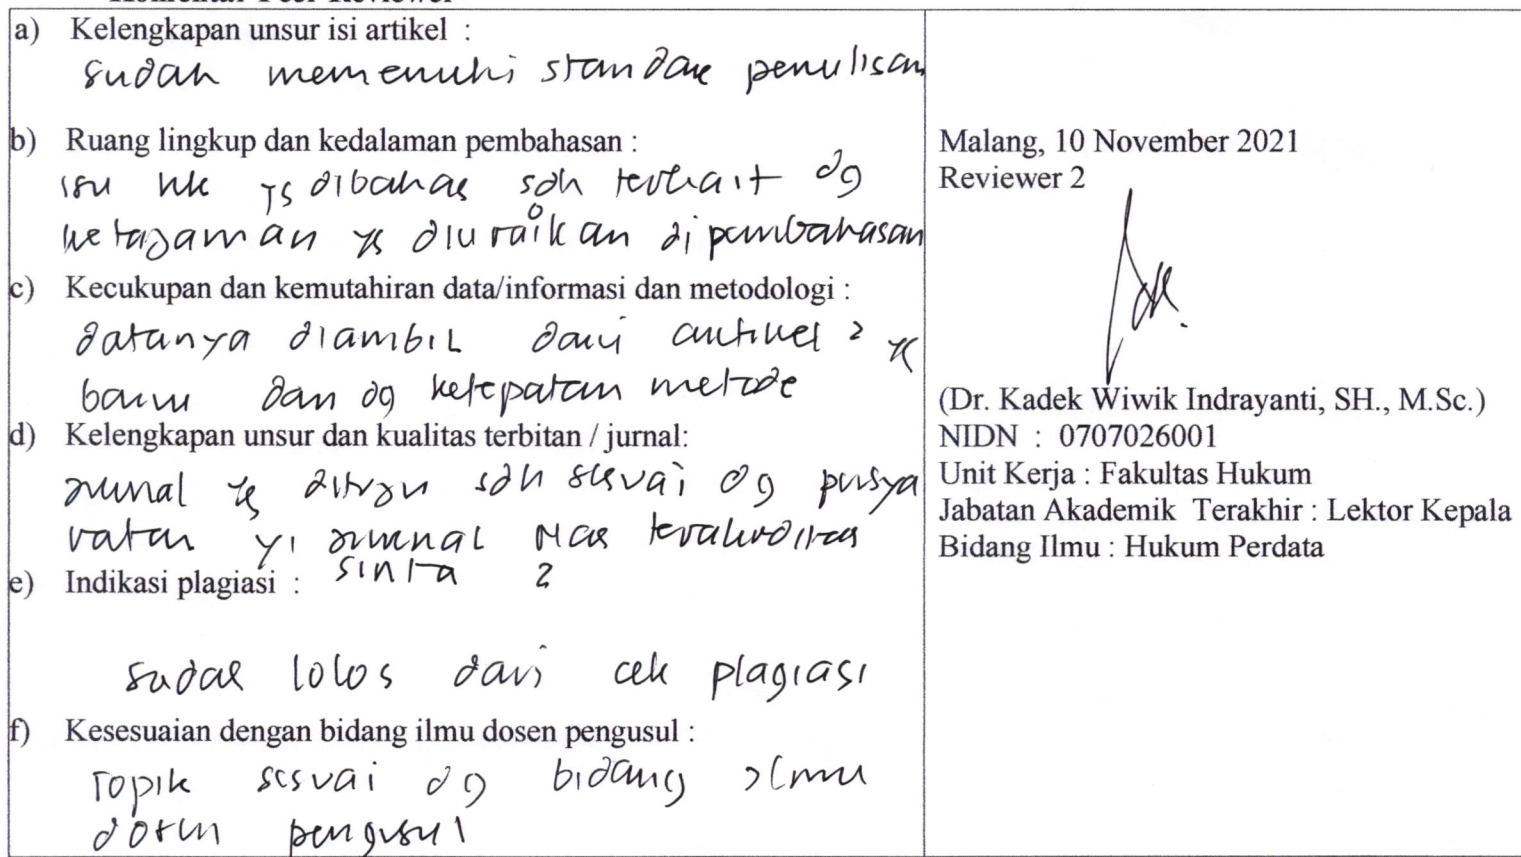 a) Kelengkapan unsur isi artikel :
sudah memenuhi standar penulisan
b) Ruang lingkup dan kedalaman pembahasan :
isu hk yg dibahas sdh terkait dg
ketajaman yg diuraikan di pembahasan
c) Kecukupan dan kemutahiran data/informasi dan metodologi :
datanya diambil dari artikel 2 yg
baru dan dg ketepatan metode
d) Kelengkapan unsur dan kualitas terbitan / jurnal:
jurnal yg dituju sdh sesuai dg persya
ratan yi jurnal Nas terakreditas
sinta 2
e) Indikasi plagiasi :
sudah lolos dari cek plagiasi
f) Kesesuaian dengan bidang ilmu dosen pengusul :
Topik sesuai dg bidang ilmu
dosen pengusul
Malang, 10 November 2021
Reviewer 2
(Dr. Kadek Wiwik Indrayanti, SH., M.Sc.)
NIDN : 0707026001
Unit Kerja : Fakultas Hukum
Jabatan Akademik Terakhir : Lektor Kepala
Bidang Ilmu : Hukum Perdata